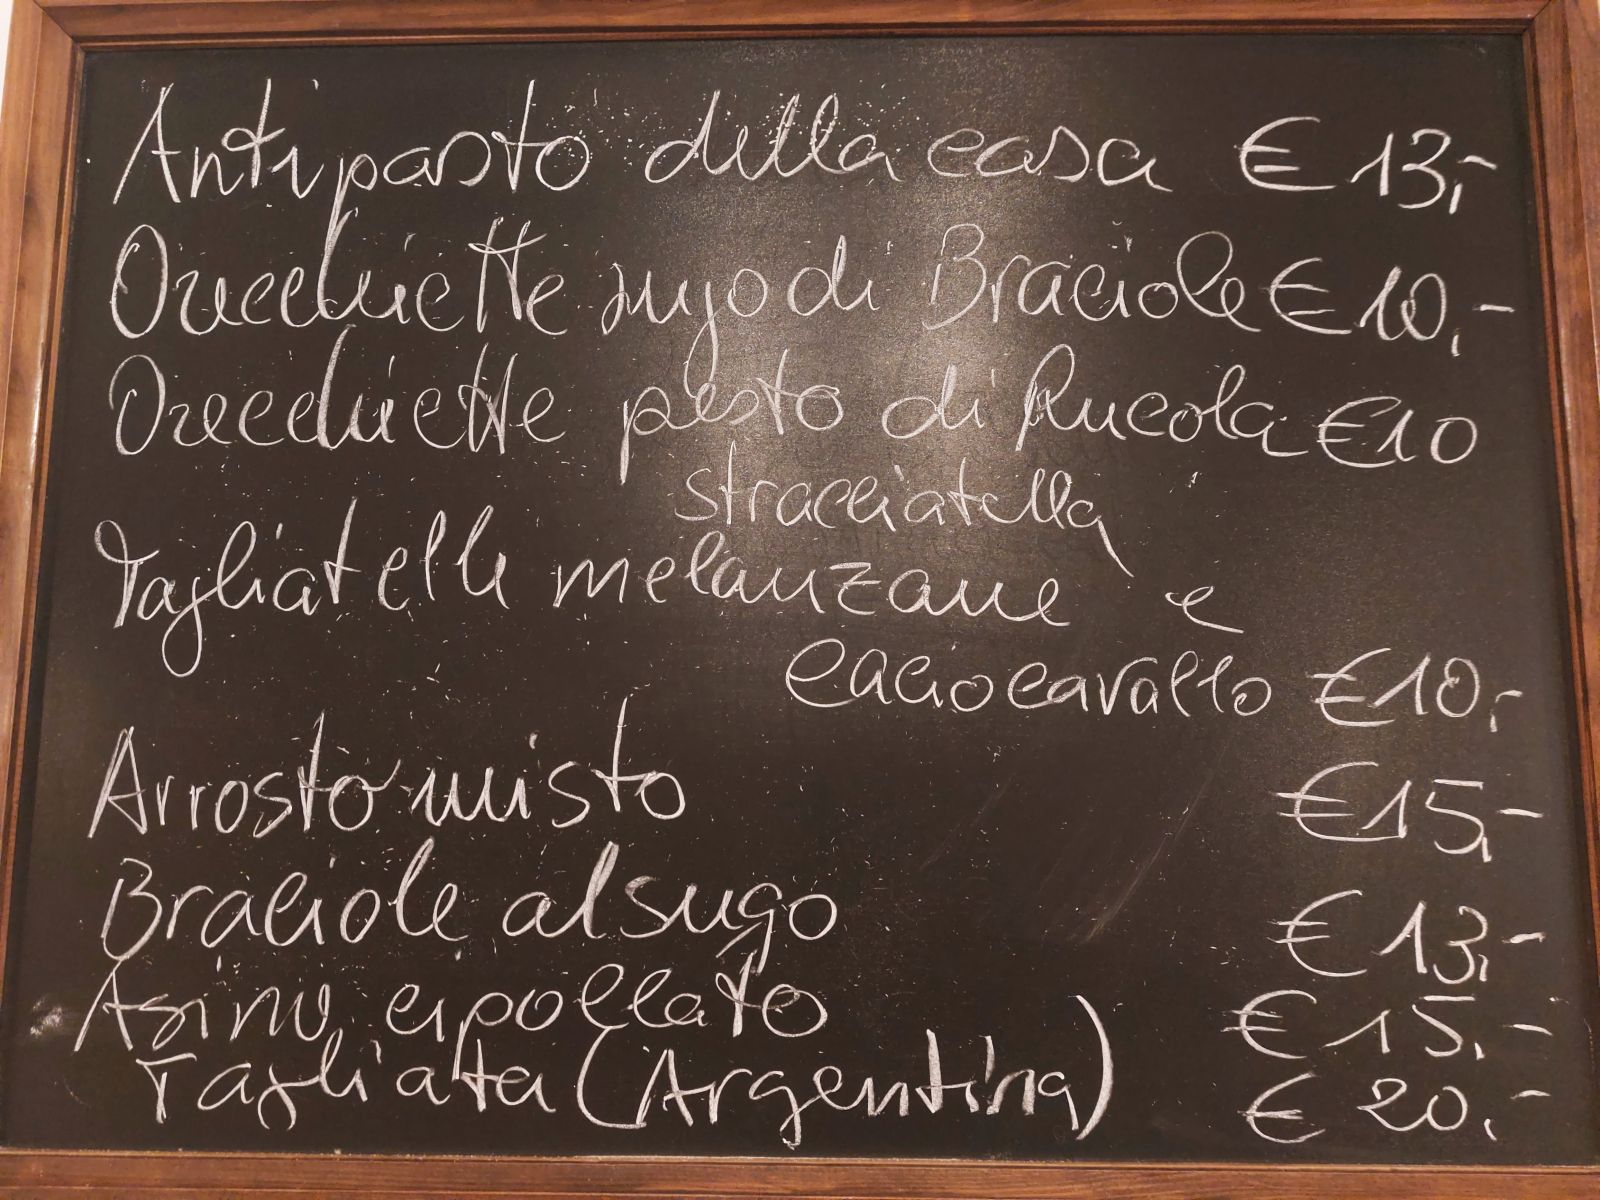 Antipasto della casa € 13,-
Orecchiette sugo di Braciole € 10,-
Orecchiette pesto di Rucola € 10
stracciatella
Tagliatelle melanzane e
caciocavallo € 10,-
Arrosto misto € 15,-
Braciole al sugo € 13,-
Asino cipollato € 15,-
Tagliata (Argentina) € 20,-